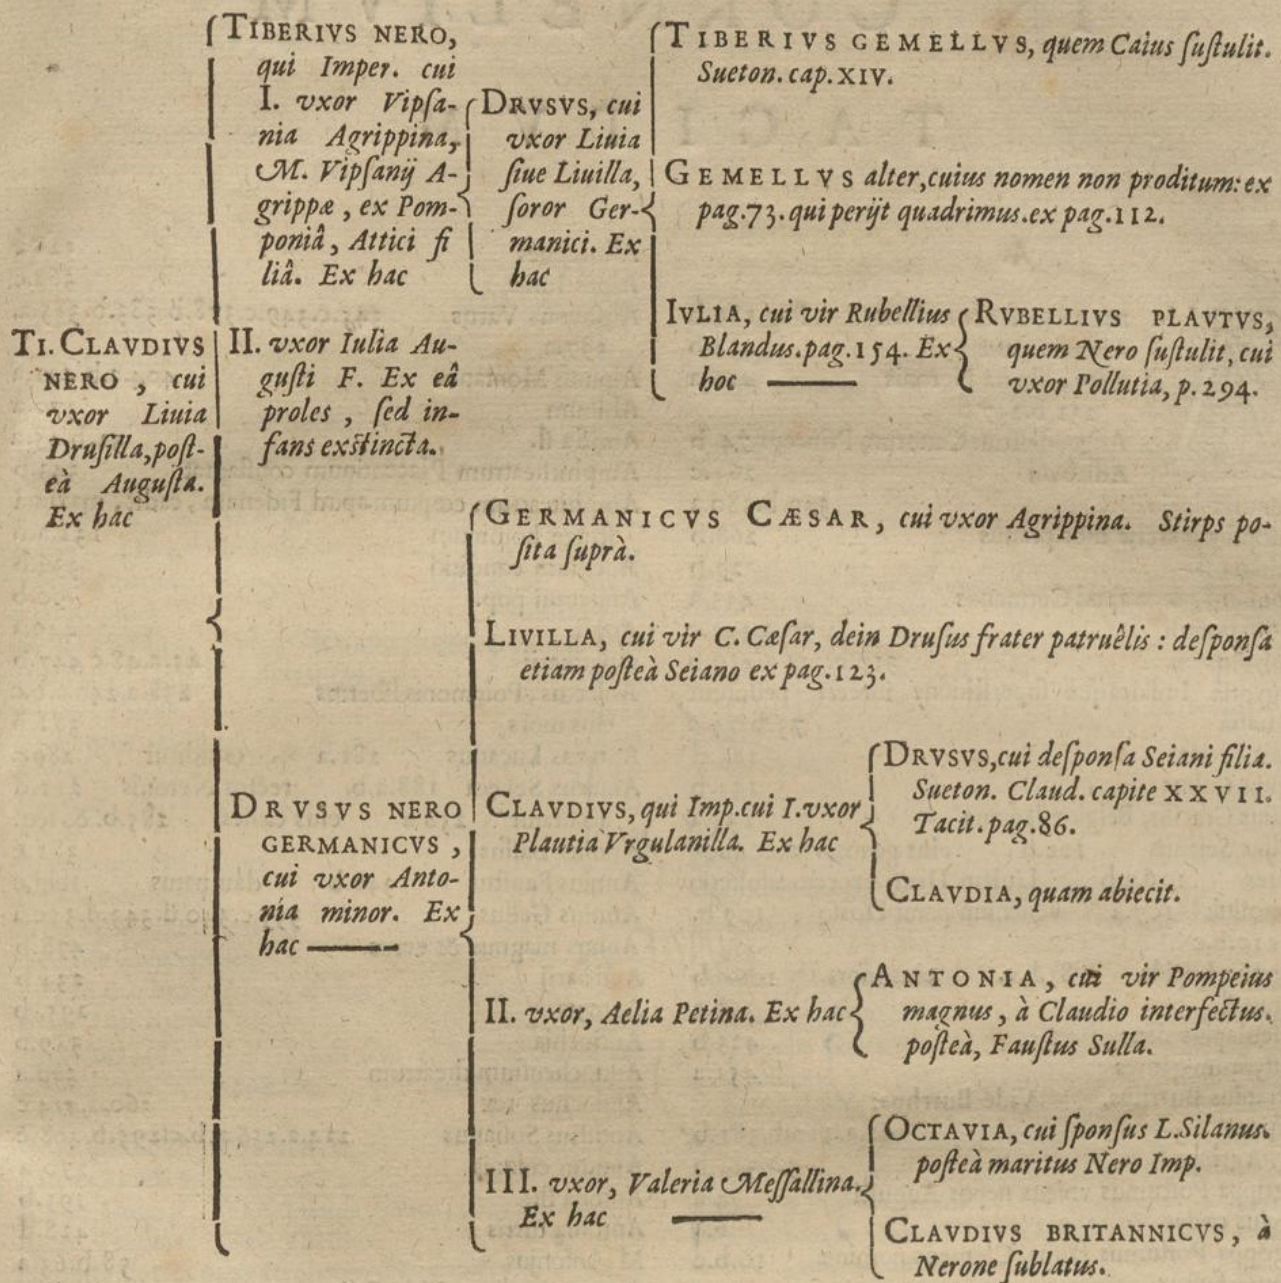 TI. CLAVDIVS
NERO , cui
vxor Liuia
Druſilla, poſt-
eà Auguſta.
Ex hác
TIBERIVS NERO,
qui Imper. cui
I. vxor Vipſa-
nia Agrippina,
M. Vipſanij A-
grippæ , ex Pom-
poniâ , Attici fi
liâ. Ex hac
DRVSVS, cui
vxor Liuia
ſiue Liuilla,
ſoror Ger-
manici. Ex
hac
TIBERIVS GEMELLVS, quem Caius ſuſtulit.
Sueton. cap. XIV.
GEMELLVS alter, cuius nomen non proditum: ex
pag. 73. qui perijt quadrimus. ex pag. 112.
IVLIA, cui vir Rubellius
Blandus. pag. 154. Ex
hoc
RVBELLIVS PLAVTVS,
quem Nero ſuſtulit, cui
vxor Pollutia, p. 294.
II. vxor Iulia Au-
guſti F. Ex eâ
proles , ſed in-
fans exſtincta.
DRVSVS NERO
GERMANICVS ,
cui vxor Anto-
nia minor. Ex
hac
GERMANICVS CÆSAR , cui vxor Agrippina. Stirps po-
ſita ſuprà.
LIVILLA, cui vir C. Cæſar, dein Druſus frater patruêlis : deſponſa
etiam poſteà Seiano ex pag. 123.
CLAVDIVS, qui Imp. cui I. vxor
Plautia Vrgulanilla. Ex hac
DRVSVS, cui deſponſa Seiani filia.
Sueton. Claud. capite XXVII.
Tacit. pag. 86.
CLAVDIA, quam abiecit.
II. vxor, Aelia Petina. Ex hac
ANTONIA , cui vir Pompeius
magnus , à Claudio interfectus.
poſteà, Fauſtus Sulla.
III. vxor, Valeria Meſſallina.
Ex hac
OCTAVIA, cui ſponſus L. Silanus.
poſteà maritus Nero Imp.
CLAVDIVS BRITANNICVS , à
Nerone ſublatus.